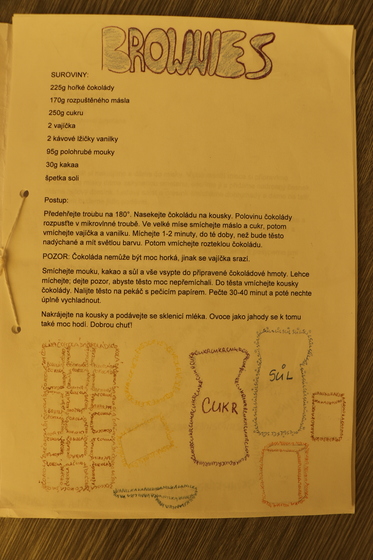 BROWNIES
SUROVINY:
225g hořké čokolády
170g rozpuštěného másla
250g cukru
2 vajíčka
2 kávové lžičky vanilky
95g polohrubé mouky
30g kakaa
špetka soli
Postup:
Předehřejte troubu na 180°. Nasekejte čokoládu na kousky. Polovinu čokolády
rozpusťte v mikrovlnné troubě. Ve velké míse smíchejte máslo a cukr, potom
vmíchejte vajíčka a vanilku. Míchejte 1-2 minuty, do té doby, než bude těsto
nadýchané a mít světlou barvu. Potom vmíchejte rozteklou čokoládu.
POZOR: Čokoláda nemůže být moc horká, jinak se vajíčka srazí.
Smíchejte mouku, kakao a sůl a vše vsypte do připravené čokoládové hmoty. Lehce
míchejte; dejte pozor, abyste těsto moc nepřemíchali. Do těsta vmíchejte kousky
čokolády. Nalijte těsto na pekáč s pečicím papírem. Pečte 30-40 minut a poté nechte
úplně vychladnout.
Nakrájejte na kousky a podávejte se sklenicí mléka. Ovoce jako jahody se k tomu
také moc hodí. Dobrou chuť!
CUKR
SŮL